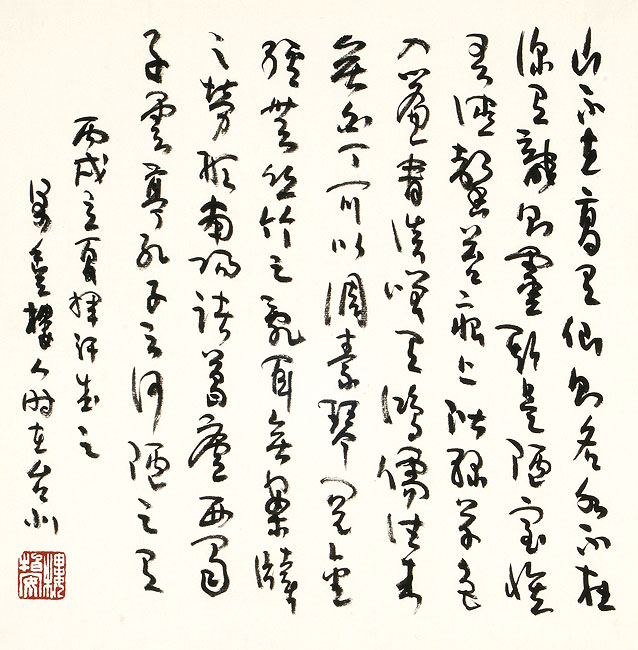 山不在高有仙則名水不在
深有龍則靈斯是陋室惟
吾德馨苔痕上階綠草色
入簾青談笑有鴻儒往來
無白丁可以調素琴閱金
經無絲竹之亂耳無案牘
之勞形南陽諸葛廬西蜀
子雲亭孔子云何陋之有
丙戌立夏揮汗書之
樓人時在台州